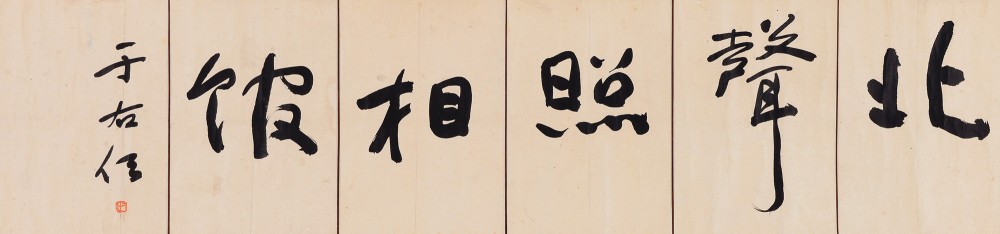 北聲照相館
于右任